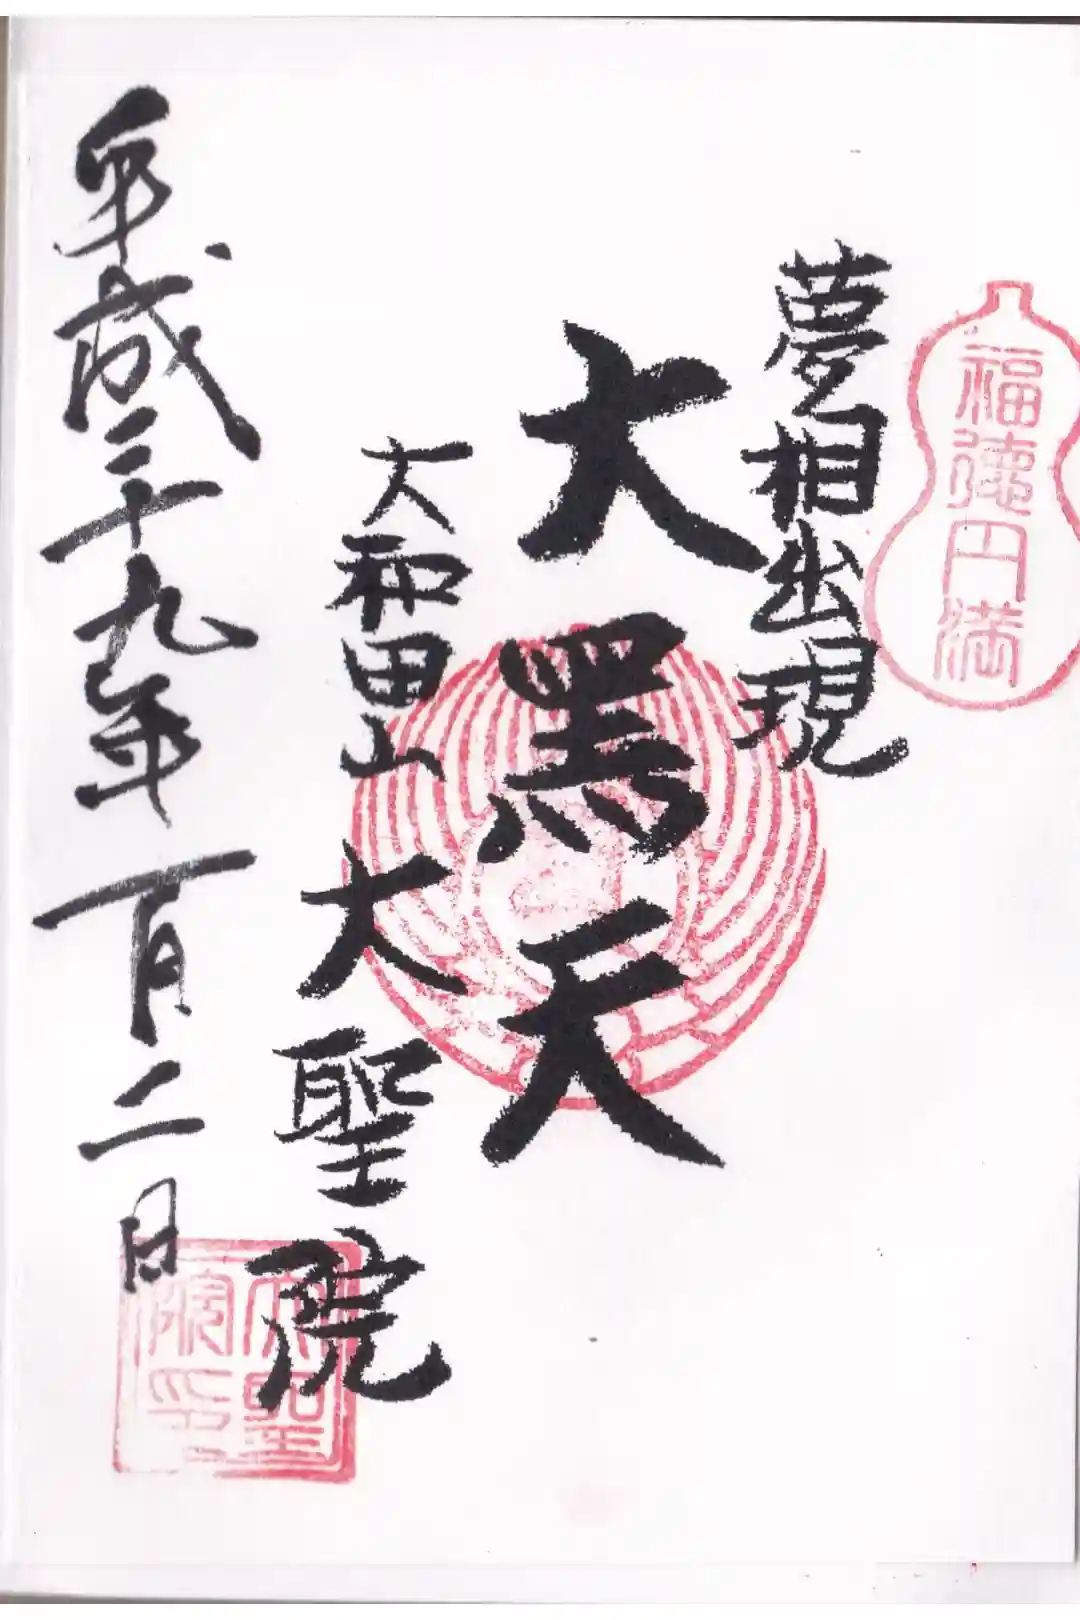 福徳円満
夢相出現
大黒天
大和田山
大聖院
平成二十九年一月二日
大聖院印